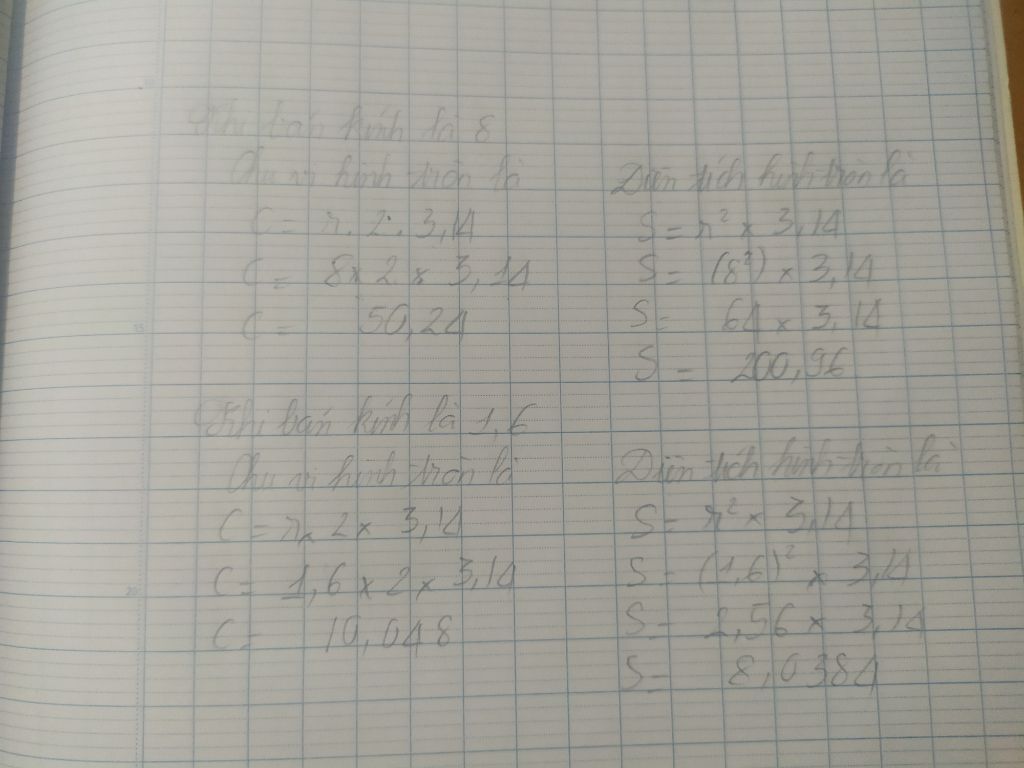 Khi bán kính là 8
Chu vi hình tròn là
C = r. 2. 3,14
C = 8 x 2 x 3,14
C = 50,24
Diện tích hình tròn là
S = r² x 3,14
S = (8²) x 3,14
S = 64 x 3,14
S = 200,96
Khi bán kính là 1,6
Chu vi hình tròn là
C = r x 2 x 3,14
C = 1,6 x 2 x 3,14
C = 10,048
Diện tích hình tròn là
S = r² x 3,14
S = (1,6)² x 3,14
S = 2,56 x 3,14
S = 8,0384